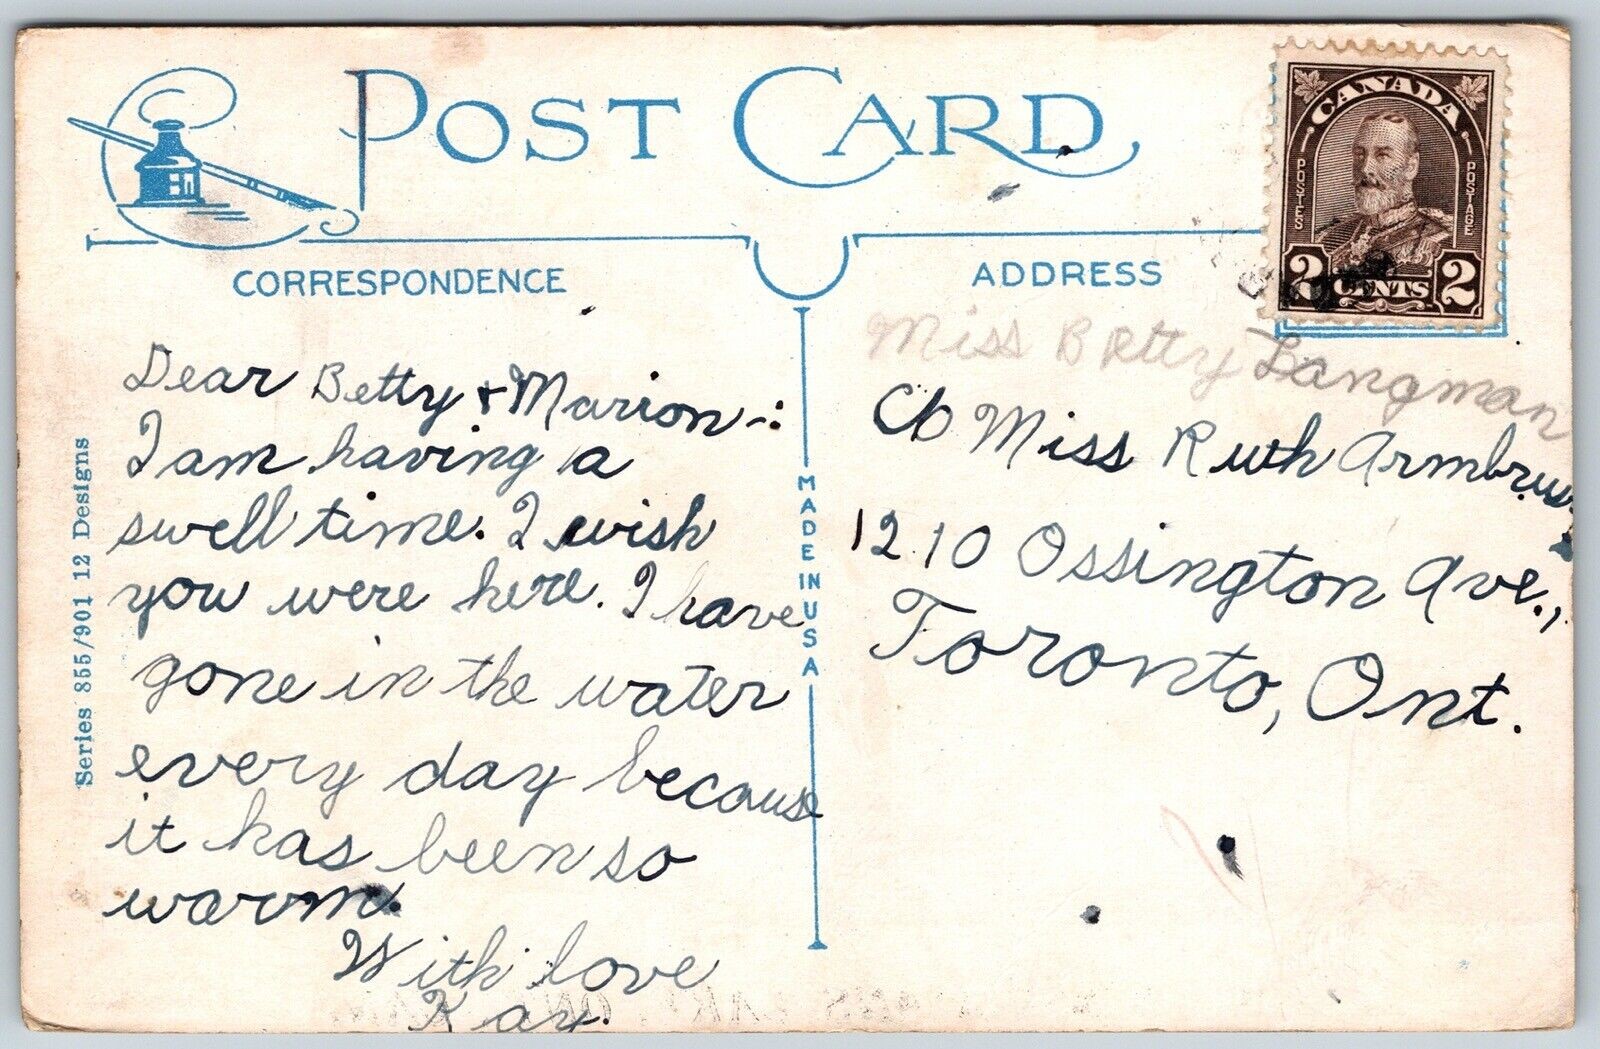 POST CARD
CANADA
POSTES
POSTAGE
2 CENTS 2
CORRESPONDENCE
ADDRESS
Dear Betty & Marion -:
I am having a
swell time. I wish
you were here. I have
gone in the water
every day because
it has been so
warm.
With love
Kay.
Series 855/901 12 Designs
MADE IN U S A
Miss Betty Langman
C/o Miss Ruth Armbrus
1210 Ossington Ave.,
Toronto, Ont.